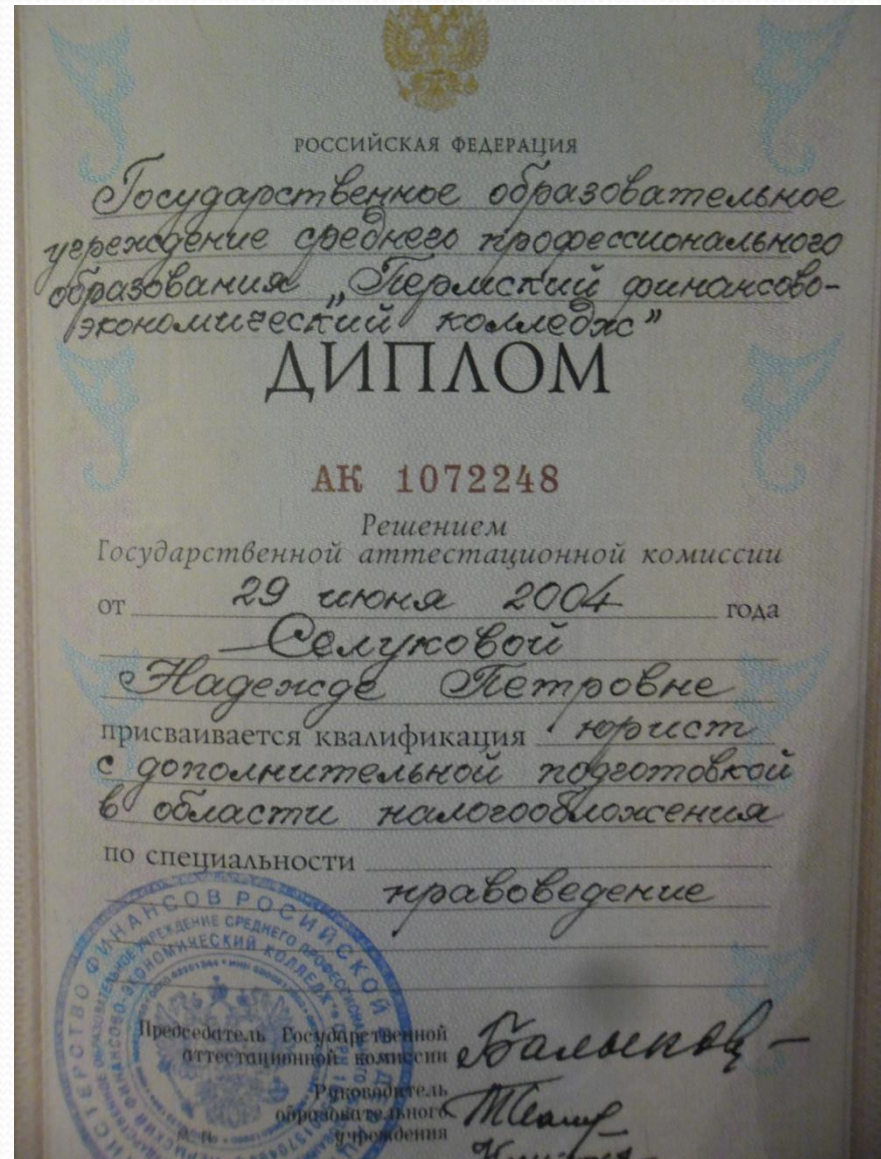 РОССИЙСКАЯ ФЕДЕРАЦИЯ
Государственное образовательное
учреждение среднего профессионального
образования „Пермский финансово-
экономический колледж”
ДИПЛОМ
АК 1072248
Решением
Государственной аттестационной комиссии
от 29 июня 2004 года
Селуковой
Надежде Петровне
присваивается квалификация юрист
с дополнительной подготовкой
в области налогообложения
по специальности
правоведение
Председатель Государственной
аттестационной комиссии
Руководитель
образовательного
учреждения